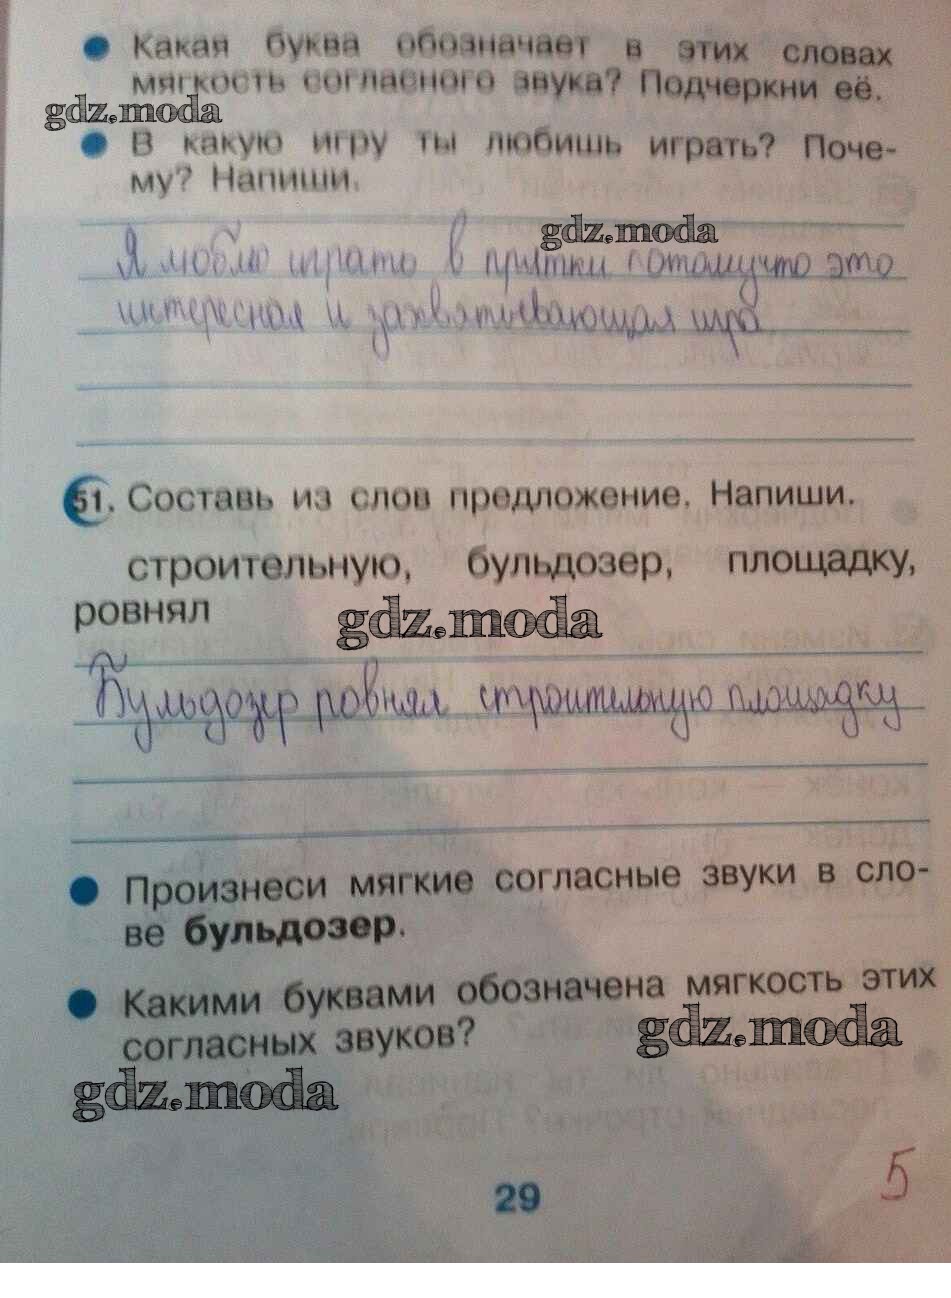 Какая буква обозначает в этих словах
мягкость согласного звука? Подчеркни её.
gdz.moda
В какую игру ты любишь играть? Поче-
му? Напиши.
gdz.moda
Я люблю играть в прятки потомучто это
интересная и захватывающая игра
51. Составь из слов предложение. Напиши.
строительную, бульдозер, площадку,
ровнял
gdz.moda
Бульдозер ровнял строительную площадку
Произнеси мягкие согласные звуки в сло-
ве бульдозер.
Какими буквами обозначена мягкость этих
согласных звуков?
gdz.moda
gdz.moda
5
29